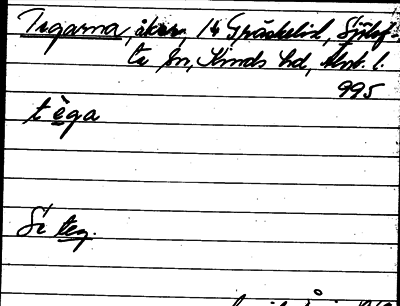 Tegarna, åkrar, 1/4 Gräskelid, Sjötof-
ta sn, Kinds hd, Älvsb. l.
995
tèga
Se teg.